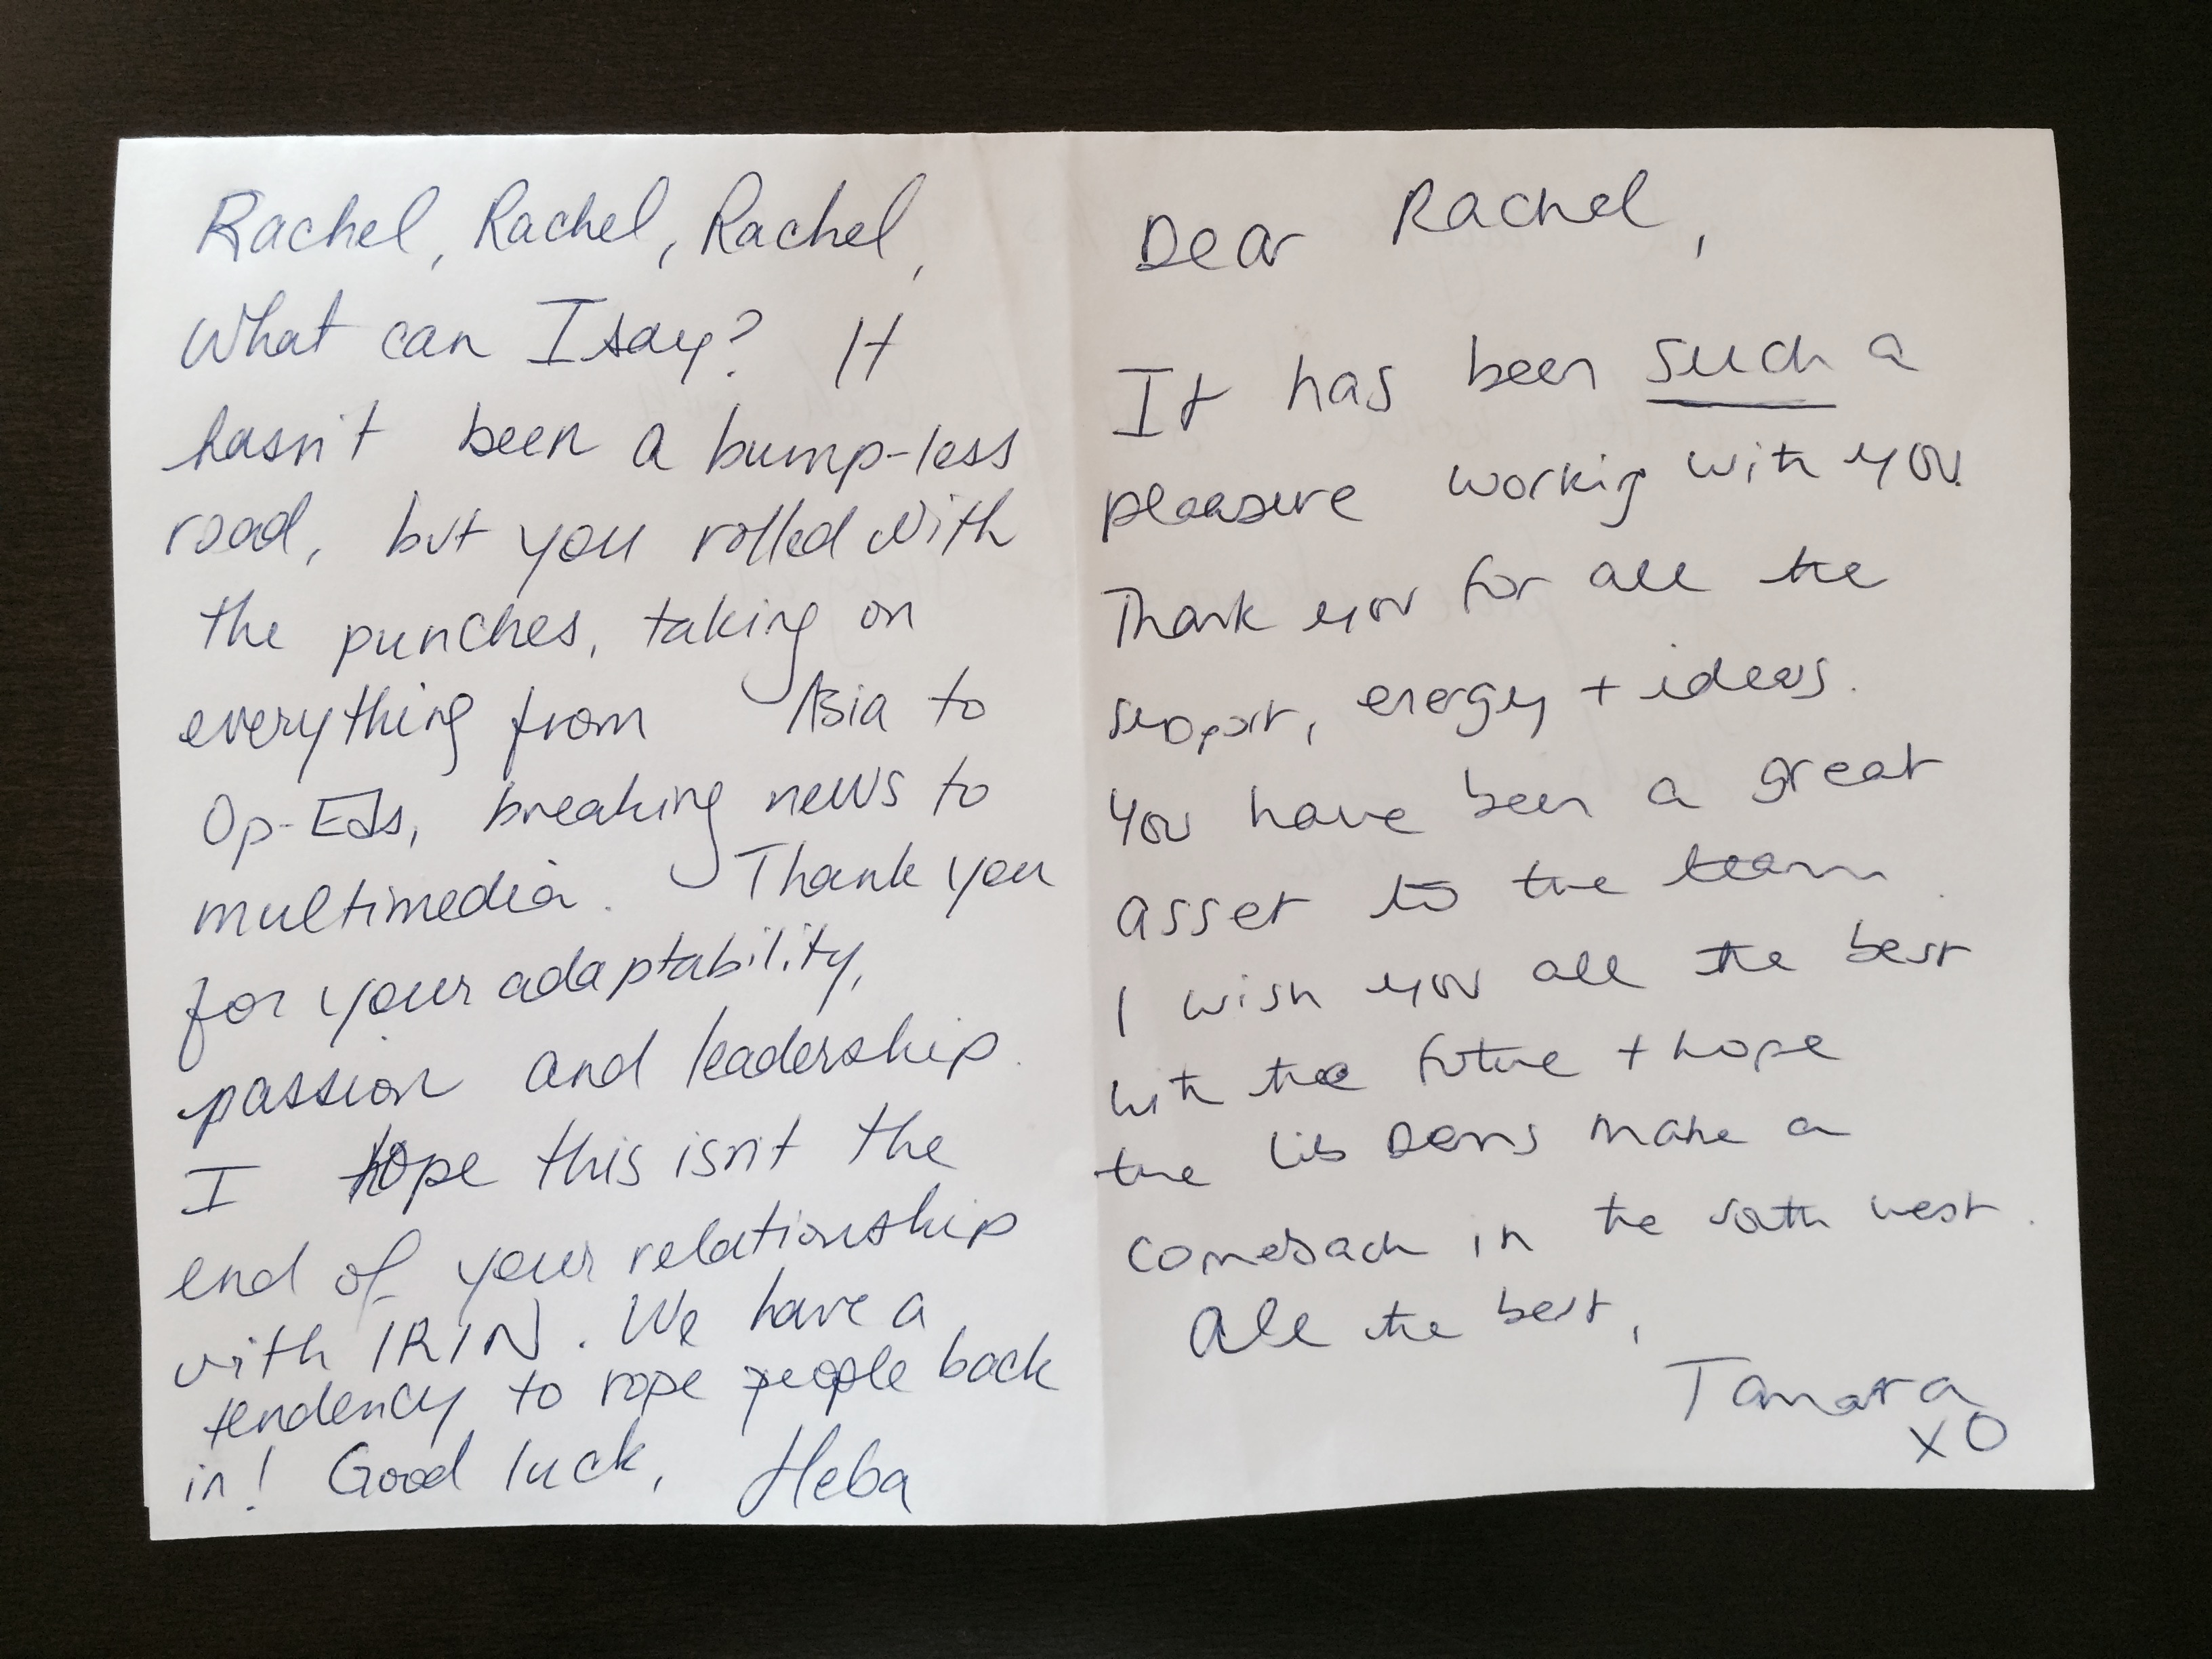 Rachel, Rachel, Rachel,
What can I say? It
hasn't been a bump-less
road, but you rolled with
the punches, taking on
everything from Asia to
Op-Eds, breaking news to
multimedia. Thank you
for your adaptability,
passion and leadership.
I hope this isn't the
end of your relationship
with IRIN. We have a
tendency to rope people back
in! Good luck, Heba
Dear Rachel,
It has been such a
pleasure working with you.
Thank you for all the
support, energy + ideas.
You have been a great
asset to the team.
I wish you all the best
with the future + hope
the Lib Dems make a
comeback in the south west.
All the best,
Tamara
XO